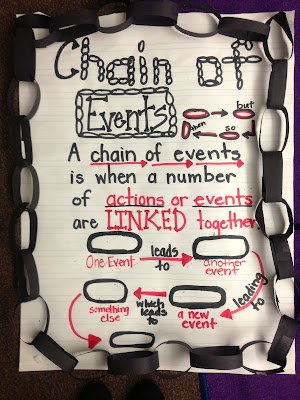 Chain of
Events
but
so
then
A chain of events
is when a number
of actions or events
are LINKED together.
One Event
leads
to
another
event
leading
to
a new
event
which
leads
to
something
else